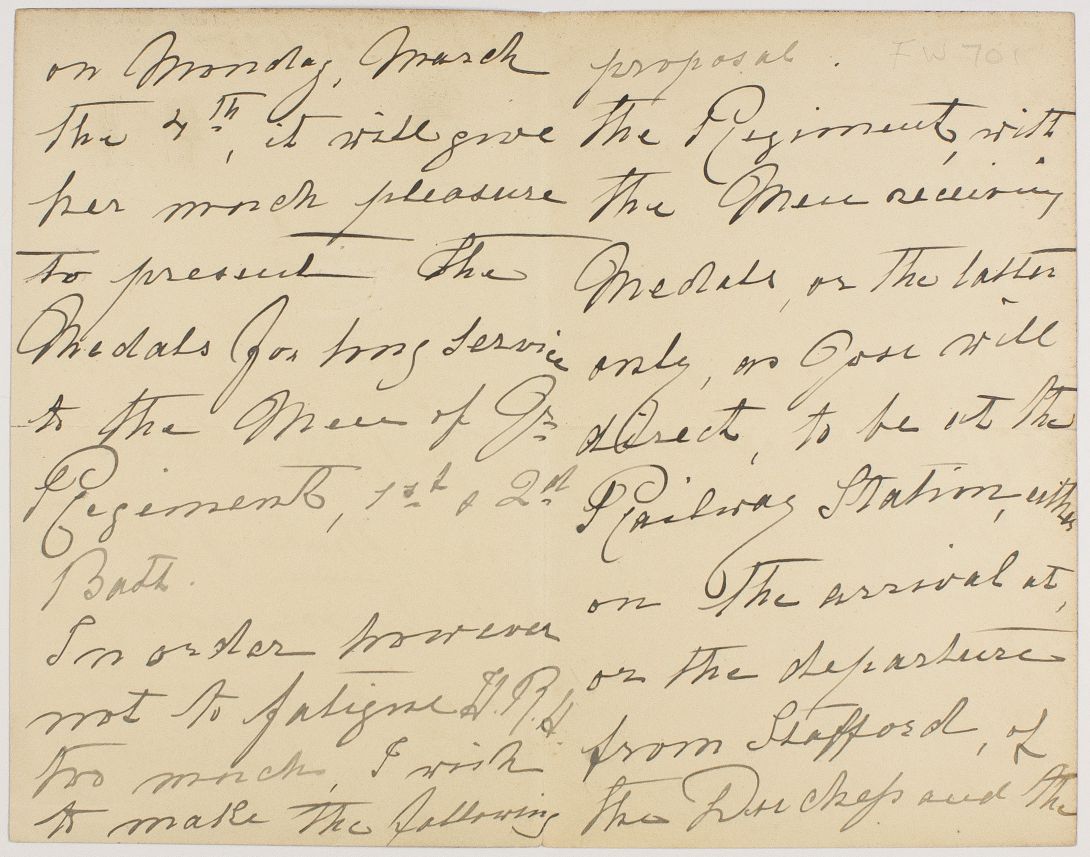 on Monday, March
the 4th, it will give
her much pleasure
to present the
Medals for long Service
to the Men of Yr
Regiment, 1st & 2nd
Batt.
In order however
not to fatigue H.R.H.
two much, I wish
to make the following
proposal. FW 701
the Regiment, with
the Men receiving
Medals, or the latter
only, as You will
direct, to be at the
Railway Station, either
on the arrival at,
or the departure
from Stafford, of
the Duchess and the